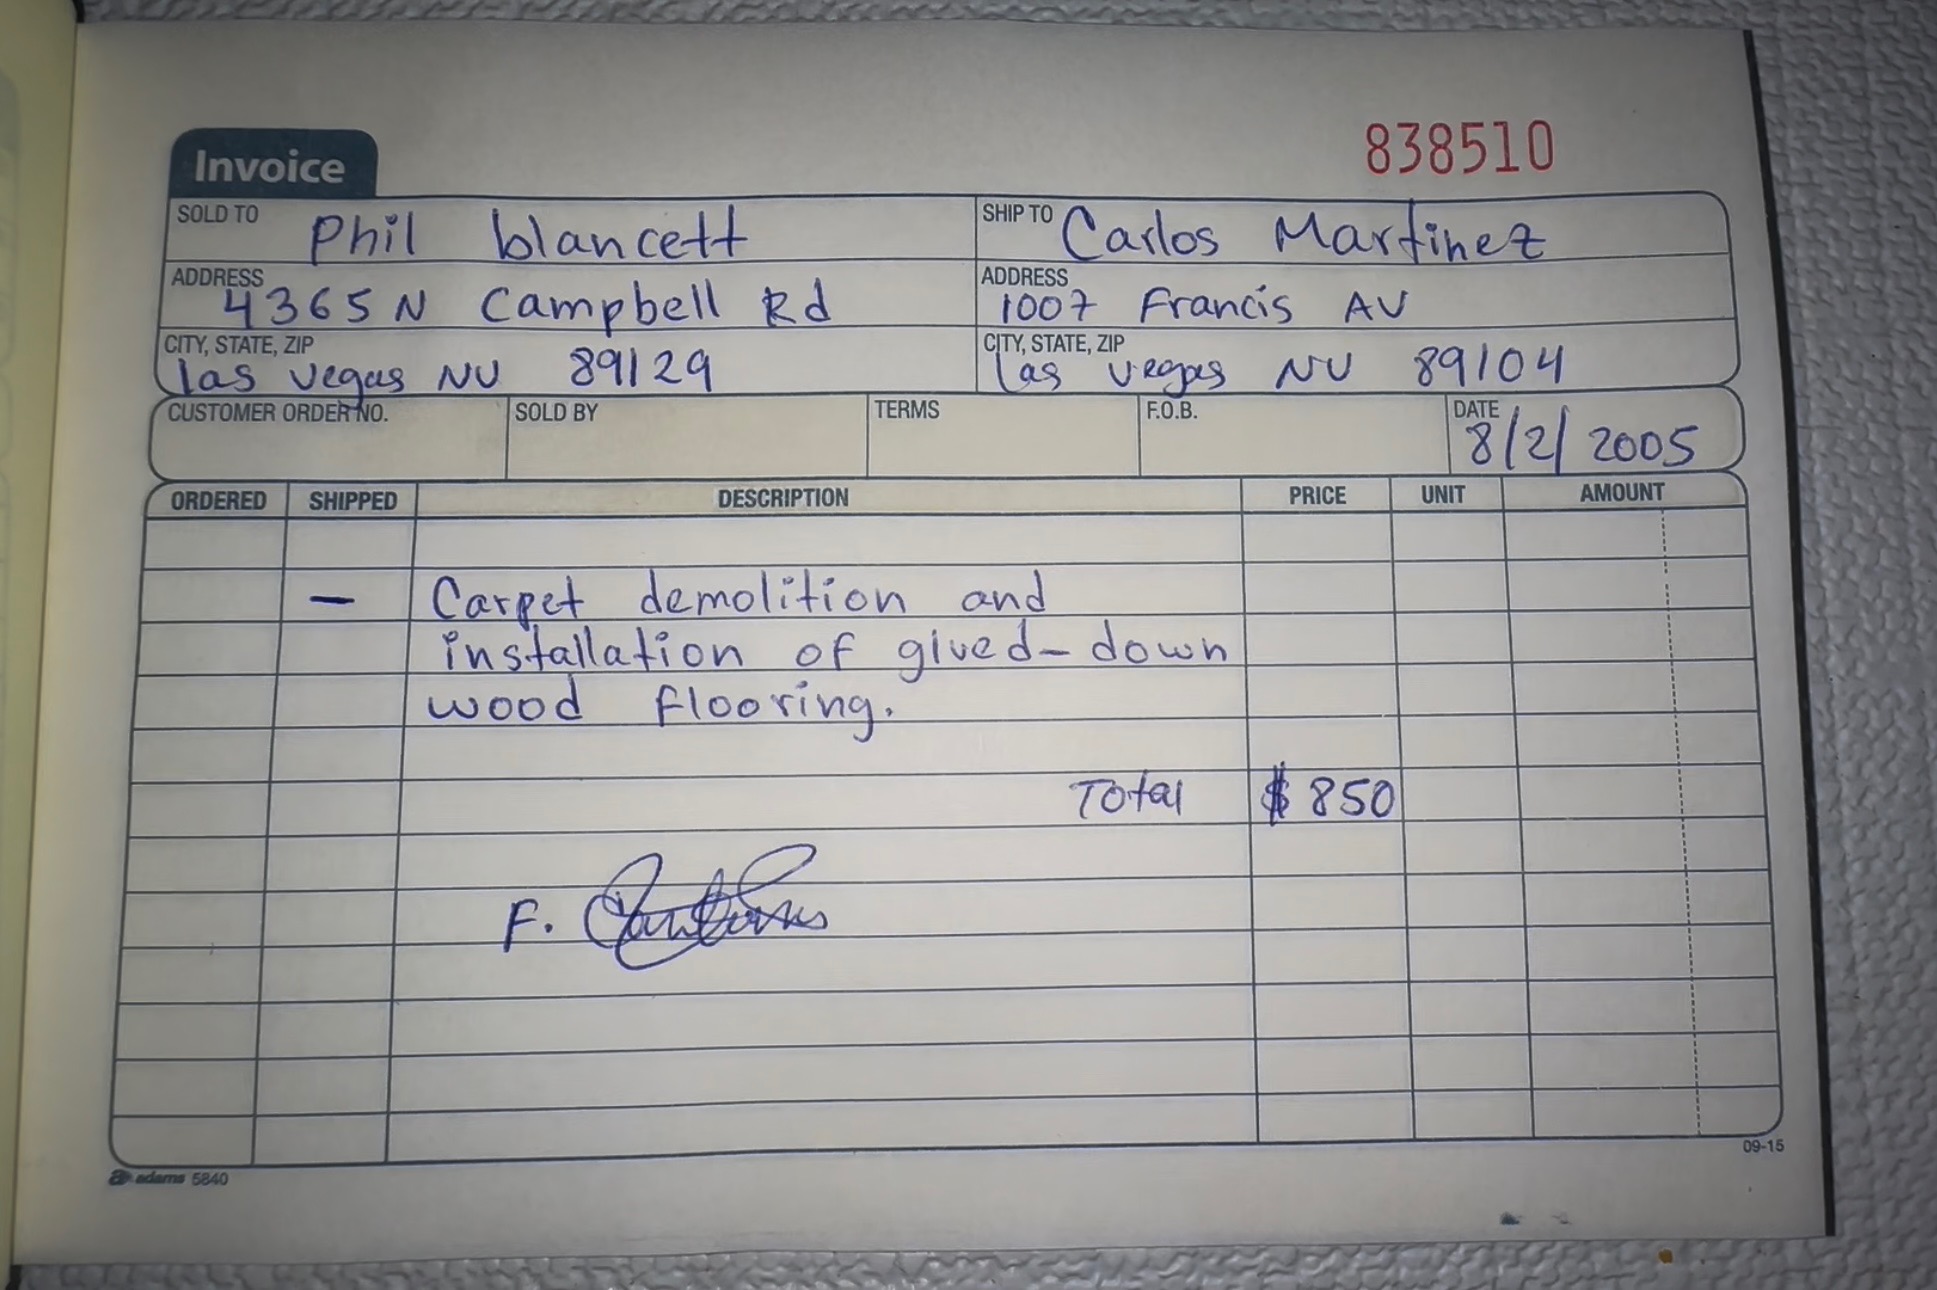 838510
Invoice
SOLD TO Phil blancett
SHIP TO Carlos Martinez
ADDRESS 4365 N Campbell Rd
ADDRESS 1007 Francis AV
CITY, STATE, ZIP las vegas NV 89129
CITY, STATE, ZIP las vegas NV 89104
CUSTOMER ORDER NO. SOLD BY TERMS F.O.B. DATE 8/2/2005
ORDERED SHIPPED DESCRIPTION PRICE UNIT AMOUNT
— Carpet demolition and
installation of glued-down
wood flooring.
Total $850
F.
09-15
adams 5840